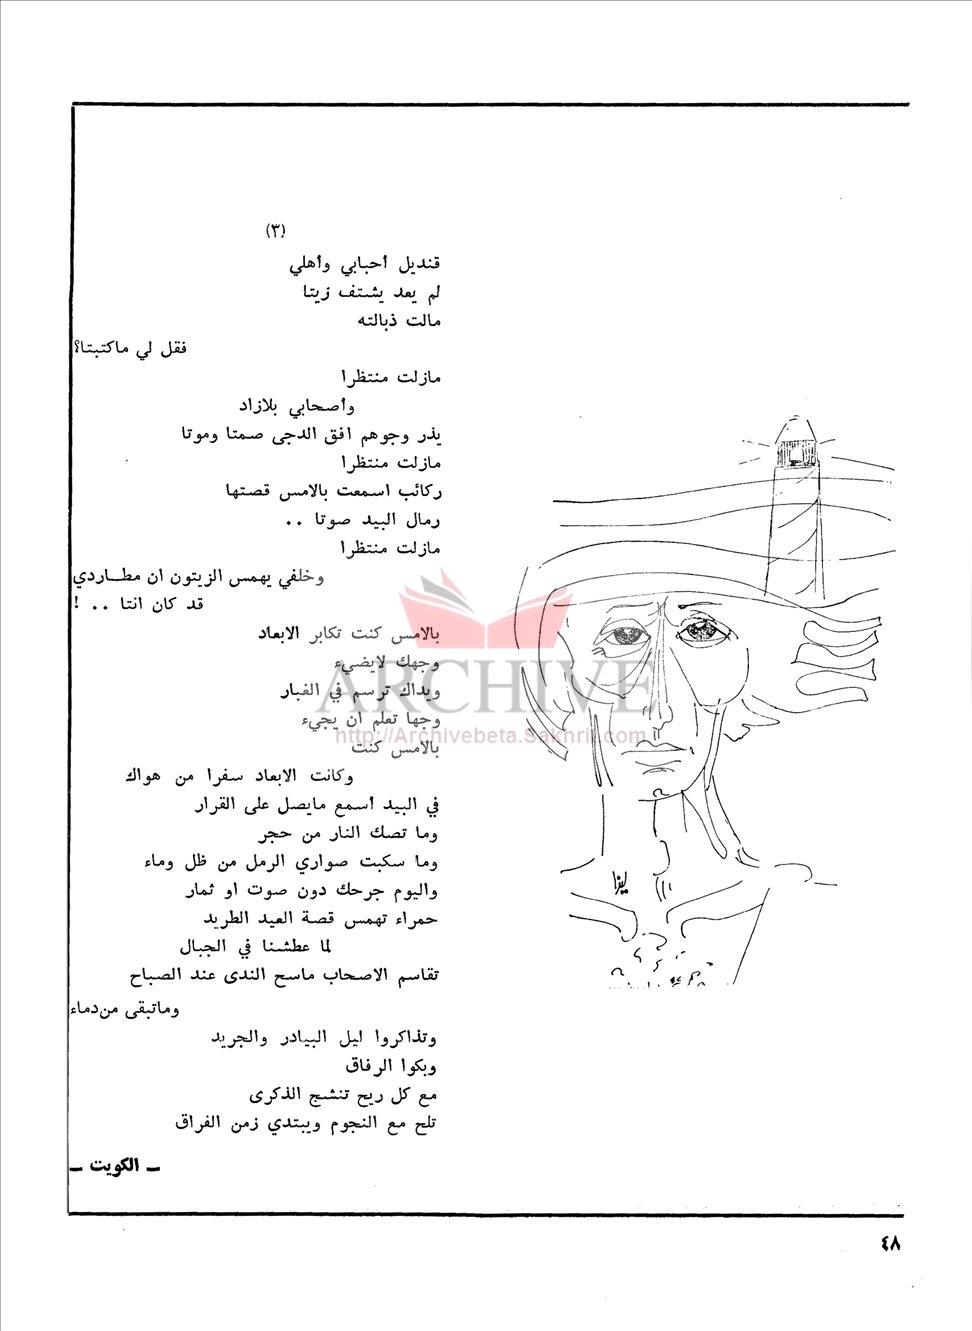 (٣)
قنديل أحبابي وأهلي
لم يعد يشتف زيتا
مالت ذبالته
فقل لي ماكتبتا؟
مازلت منتظرا
وأصحابي بلازاد
يذر وجوهم افق الدجى صمتا وموتا
مازلت منتظرا
ركائب اسمعت بالامس قصتها
رمال البيد صوتا ..
مازلت منتظرا
وخلفي يهمس الزيتون ان مطـاردي
قد كان انتا .. !
بالامس كنت تكابر الابعاد
وجهك لايضيء
ويداك ترسم في الغبار
وجها تعلم ان يجيء
بالامس كنت
وكانت الابعاد سفرا من هواك
في البيد أسمع مايصل على القرار
وما تصك النار من حجر
وما سكبت صواري الرمل من ظل وماء
واليوم جرحك دون صوت او ثمار
حمراء تهمس قصة العيد الطريد
لما عطشنا في الجبال
تقاسم الاصحاب ماسح الندى عند الصباح
وماتبقى من دماء
وتذاكروا ليل البيادر والجريد
وبكوا الرفاق
مع كل ريح تنشج الذكرى
تلح مع النجوم ويبتدي زمن الفراق
ـ الكويت ـ
ليزا
ARCHIVE
http://Archivebeta.Sakhrit.com
٤٨